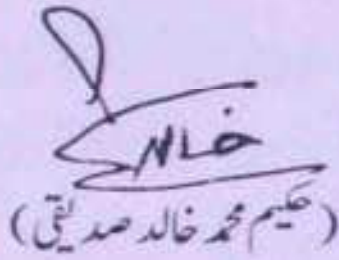 خالد
(حکیم محمد خالد صدیقی)